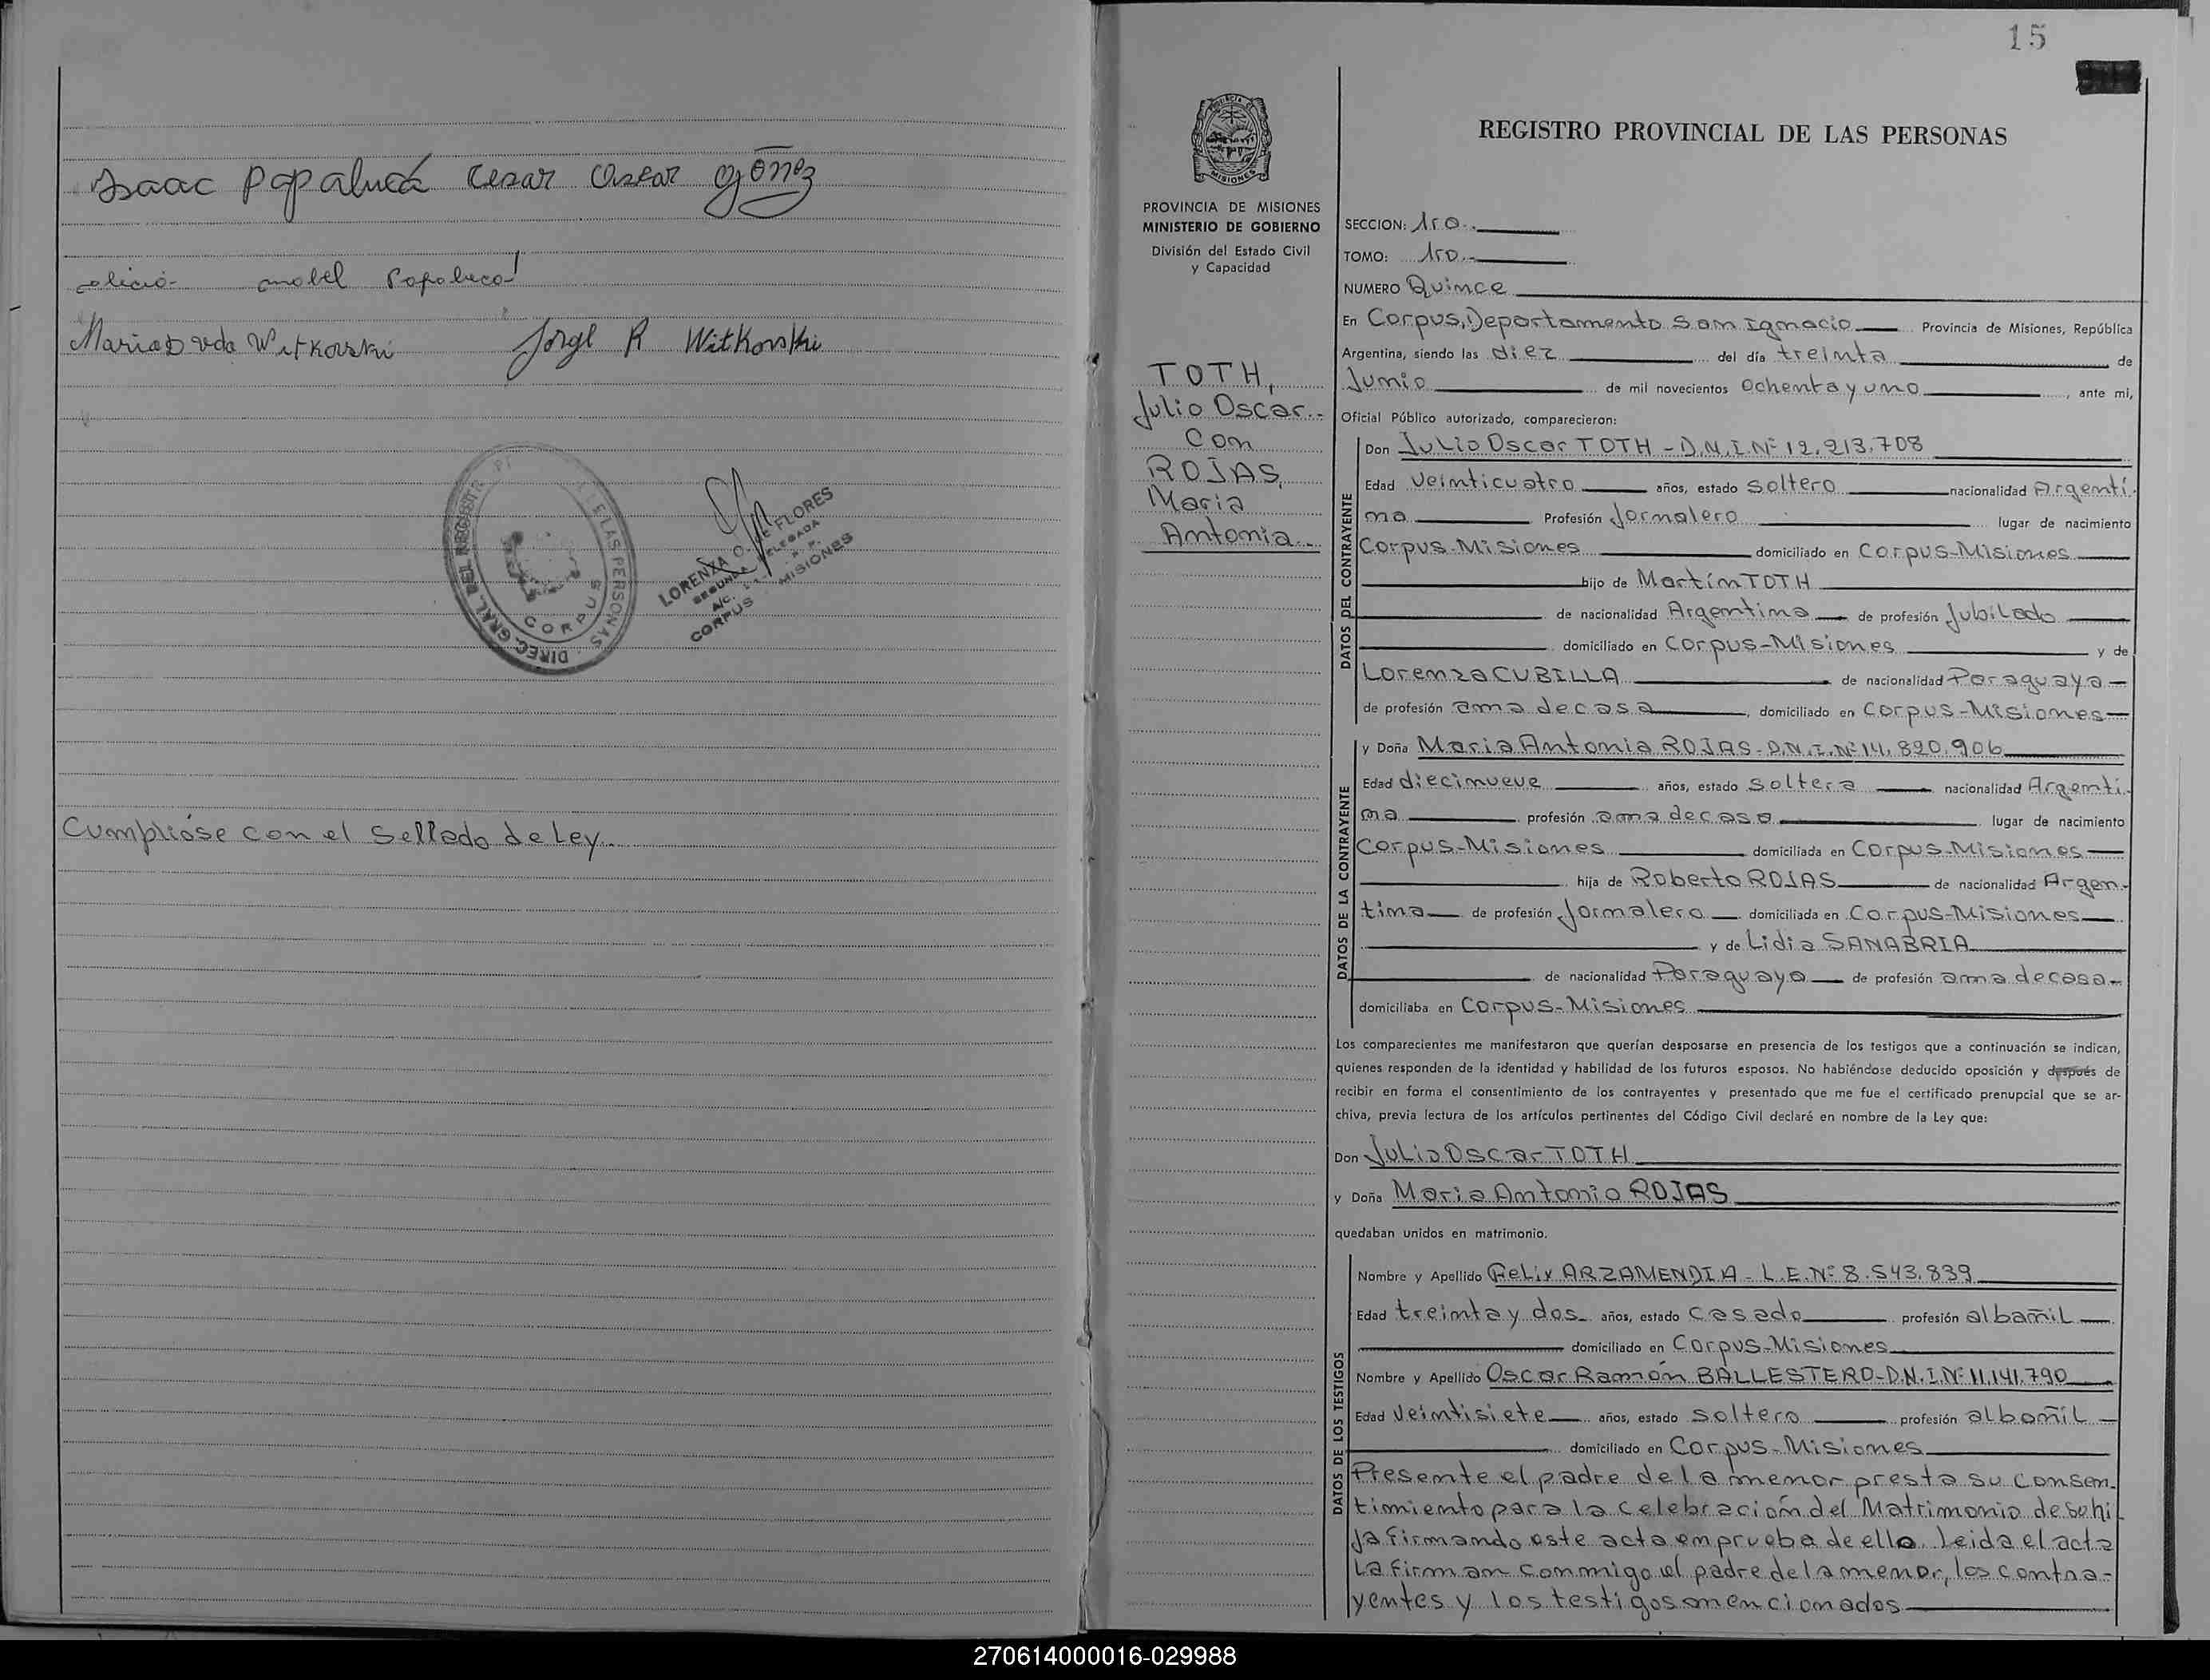 Isaac Popaluca Cesar Oscar Gómez
Mabel Popaluca
Maria D vda Witkowski Jorge R Witkowski
DIREC. GRAL. DEL REGISTR
DE LAS PERSONAS
CORPUS
LORENZA O. DE FLORES
SEGUNDA DELEGADA
CORPUS - MISIONES
Cumplióse con el Sellado de Ley.
15
PROVINCIA DE MISIONES
MINISTERIO DE GOBIERNO
División del Estado Civil
y Capacidad
TOTH,
Julio Oscar
con
ROJAS,
Maria
Antonia
REGISTRO PROVINCIAL DE LAS PERSONAS
SECCION: 1ro.
TOMO: 1ro.
NUMERO Quince
En Corpus, Departamento San Ignacio Provincia de Misiones, República
Argentina, siendo las diez del día treinta de
Junio de mil novecientos Ochenta y uno, ante mi,
Oficial Público autorizado, comparecieron:
DATOS DEL CONTRAYENTE
Don Julio Oscar TOTH - D.N.I. Nº 12.213.708
Edad Veinticuatro años, estado Soltero nacionalidad Argenti-
na Profesión Jornalero lugar de nacimiento
Corpus-Misiones domiciliado en Corpus-Misiones
hijo de Martín TOTH
de nacionalidad Argentina de profesión Jubilado
domiciliado en Corpus-Misiones y de
Lorenza CUBILLA de nacionalidad Paraguaya
de profesión ama de casa, domiciliado en Corpus-Misiones
DATOS DE LA CONTRAYENTE
y Doña Maria Antonia ROJAS - D.N.I. Nº 14.820.906
Edad diecinueve años, estado Soltera nacionalidad Argenti-
na profesión ama de casa lugar de nacimiento
Corpus-Misiones domiciliada en Corpus-Misiones
hija de Roberto ROJAS de nacionalidad Argen-
tina de profesión Jornalero domiciliada en Corpus-Misiones
y de Lidia SANABRIA
de nacionalidad Paraguaya de profesión ama de casa
domiciliaba en Corpus-Misiones
Los comparecientes me manifestaron que querían desposarse en presencia de los testigos que a continuación se indican,
quienes responden de la identidad y habilidad de los futuros esposos. No habiéndose deducido oposición y después de
recibir en forma el consentimiento de los contrayentes y presentado que me fue el certificado prenupcial que se ar-
chiva, previa lectura de los artículos pertinentes del Código Civil declaré en nombre de la Ley que:
Don Julio Oscar TOTH
y Doña Maria Antonia ROJAS
quedaban unidos en matrimonio.
DATOS DE LOS TESTIGOS
Nombre y Apellido Felix ARZAMENDIA - L.E. Nº 8.543.839
Edad treinta y dos años, estado Casado profesión albañil
domiciliado en Corpus-Misiones
Nombre y Apellido Oscar Ramón BALLESTERO - D.N.I. Nº 11.141.790
Edad Veintisiete años, estado Soltero profesión albañil
domiciliado en Corpus-Misiones
Presente el padre de la menor presta su consen-
timiento para la celebración del Matrimonio de su hi-
ja firmando este acta en prueba de ello. Leida el acta
la firman conmigo el padre de la menor, los contra-
yentes y los testigos mencionados
270614000016-029988